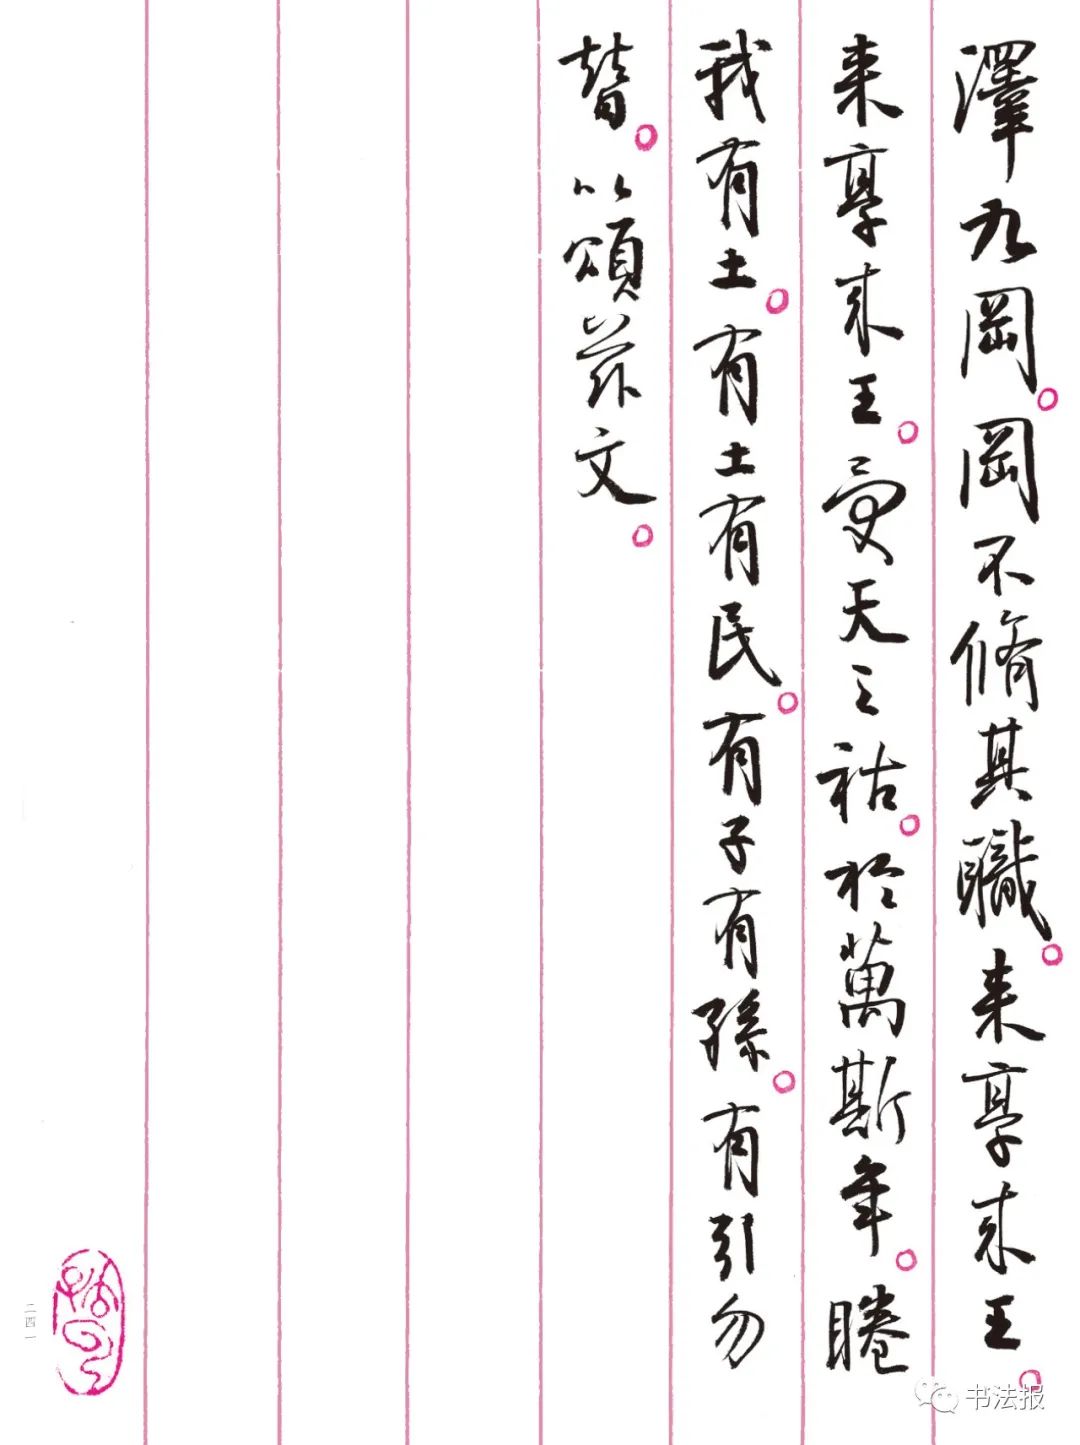 澤九岡。岡不脩其職。来享来王。
来享来王。受天之祜。於萬斯年。睠
我有土。有土有民。有子有孫。有引勿
替。以頌茲文。
二四一
书法报